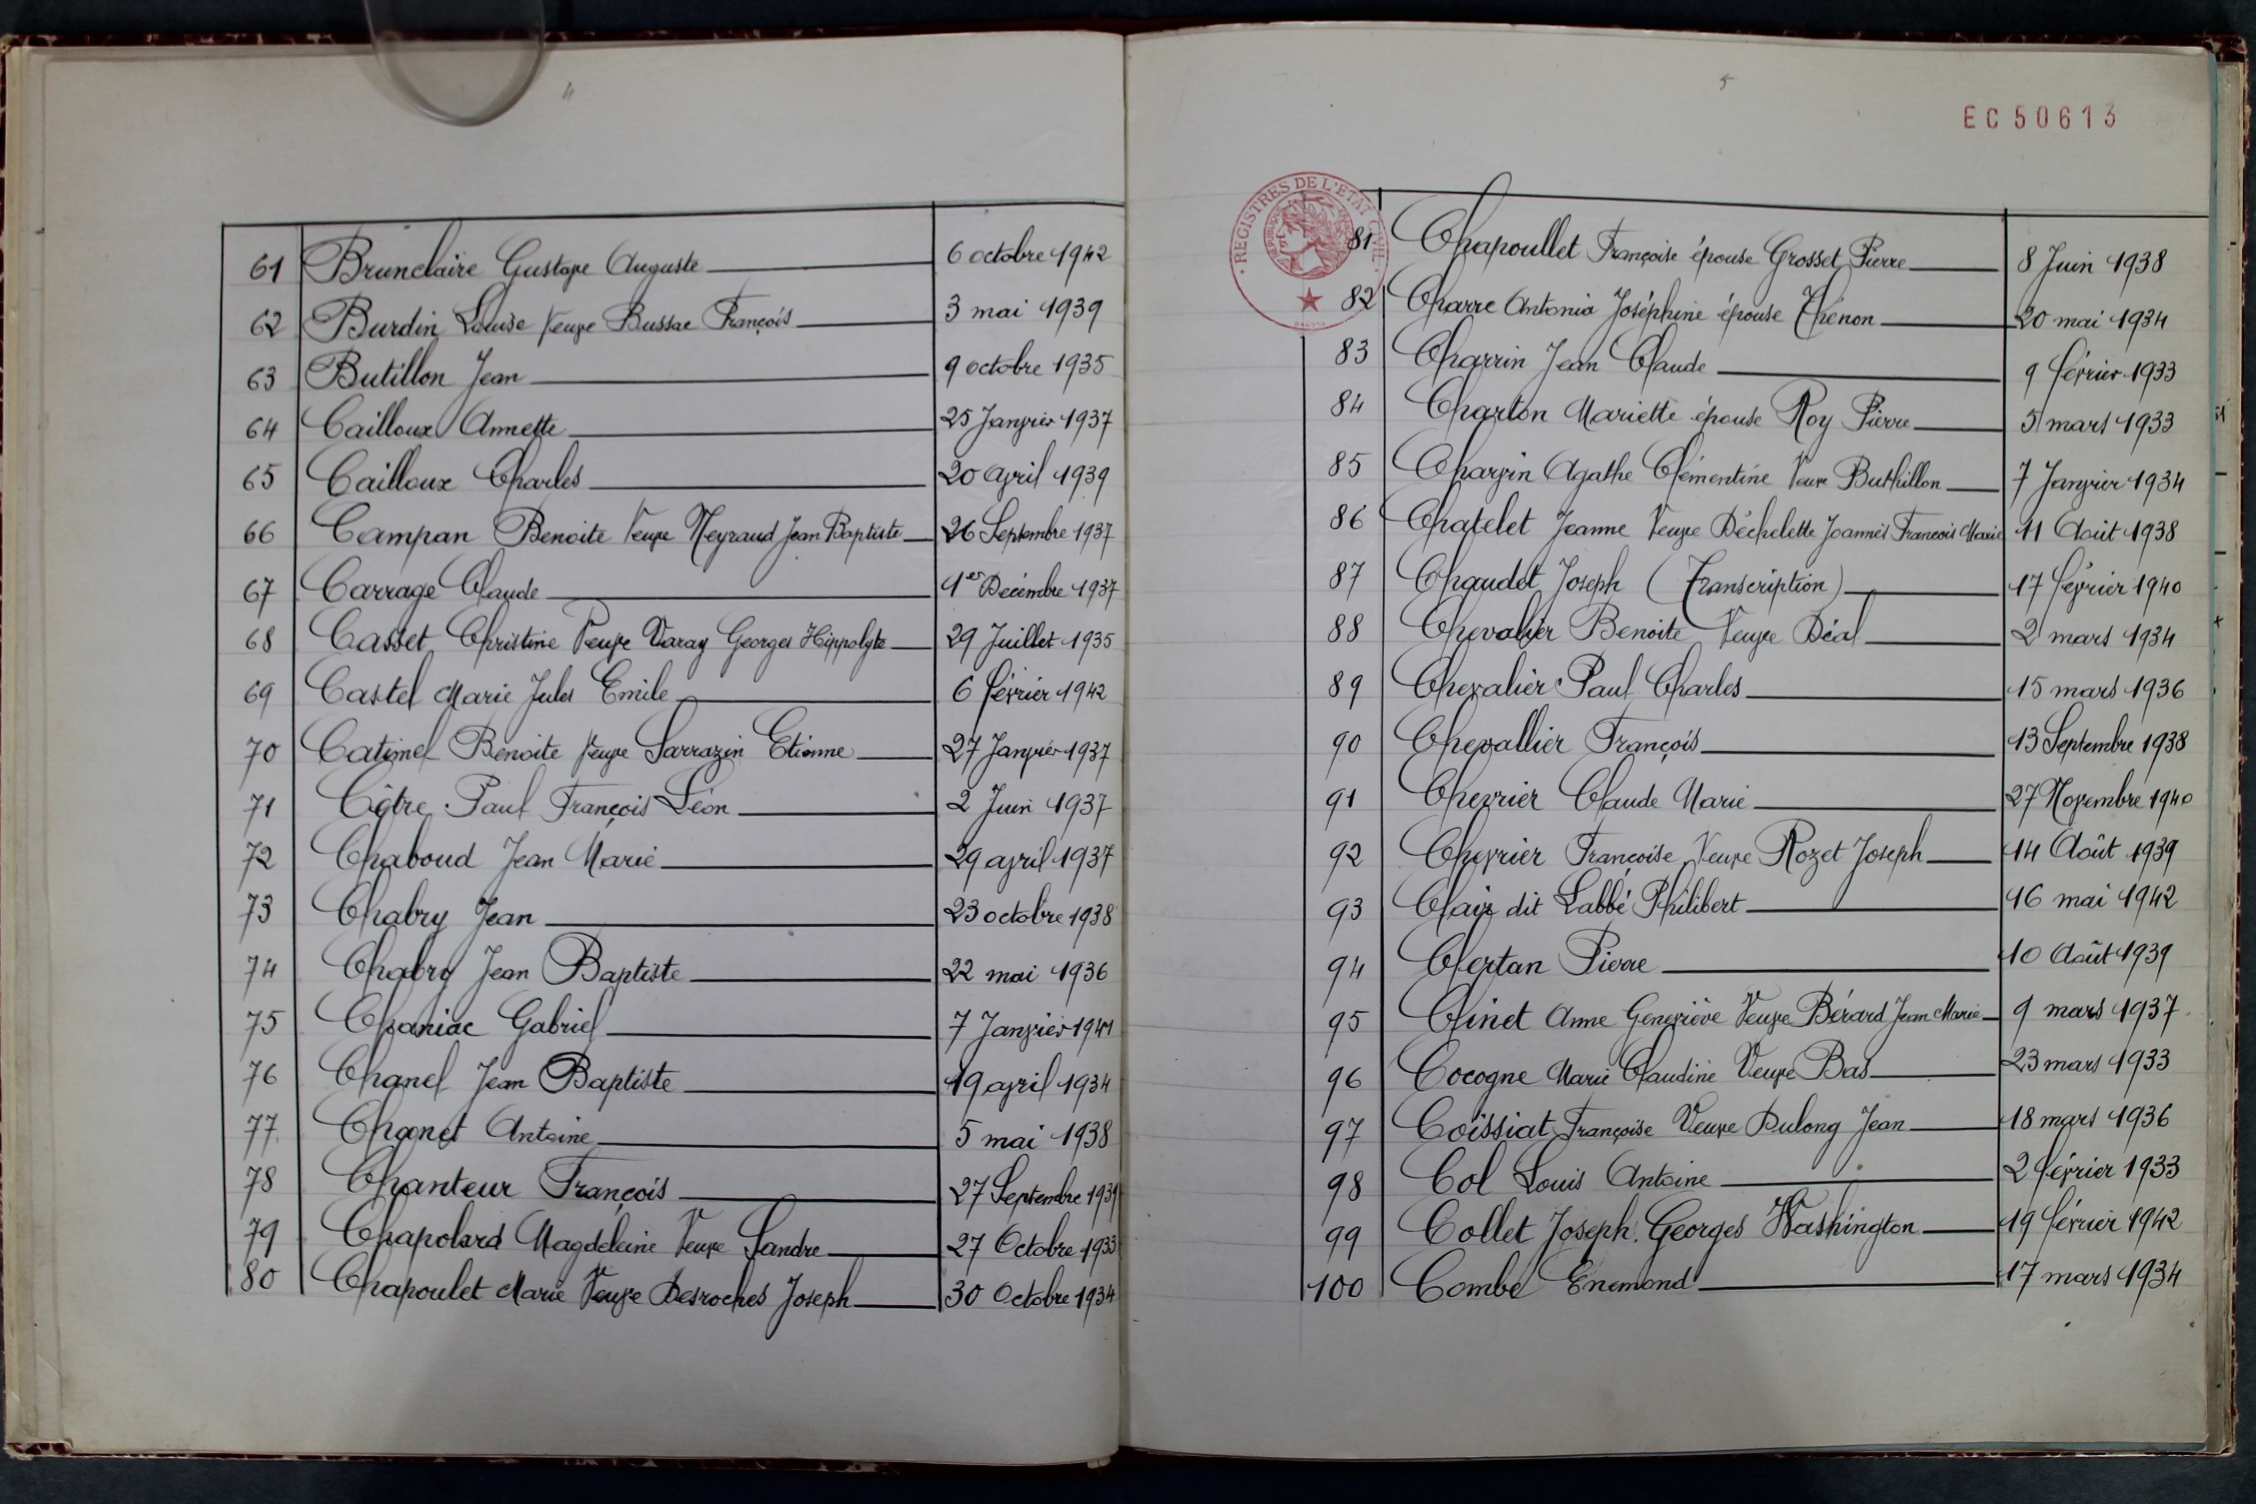 4
61 Brunclaire Gustave Auguste 6 octobre 1942
62 Burdin Louise Veuve Bussac François 3 mai 1939
63 Butillon Jean 9 octobre 1935
64 Cailloux Annette 25 Janvier 1937
65 Cailloux Charles 20 avril 1939
66 Campan Benoite Veuve Neyraud Jean Baptiste 26 Septembre 1937
67 Carrage Claude 1er Décembre 1937
68 Casset Christine Veuve Varay Georges Hippolyte 29 Juillet 1935
69 Castel Marie Jules Emile 6 février 1942
70 Catimel Benoite Veuve Sarrazin Etienne 27 Janvier 1937
71 Côtre Paul François Léon 2 Juin 1937
72 Chaboud Jean Marie 29 avril 1937
73 Chabry Jean 23 octobre 1938
74 Chabry Jean Baptiste 22 mai 1936
75 Chaniac Gabriel 7 Janvier 1941
76 Chanel Jean Baptiste 19 avril 1934
77 Chanet Antoine 5 mai 1938
78 Chanteur François 27 Septembre 1939
79 Chapolard Magdeleine Veuve Sandre 27 Octobre 1933
80 Chapoulet Marie Veuve Desroches Joseph 30 Octobre 1934
5
EC 50613
REGISTRES DE L'ETAT CIVIL
81 Chapoullet Françoise épouse Grosset Pierre 8 Juin 1938
82 Charre Antonia Joséphine épouse Thénon 20 mai 1934
83 Charrin Jean Claude 9 février 1933
84 Charton Mariette épouse Roy Pierre 5 mars 1933
85 Charvin Agathe Clémentine Veuve Buthillon 7 Janvier 1934
86 Chatelet Jeanne Veuve Déchelette Joannès François Marie 11 Août 1938
87 Chaudet Joseph (Transcription) 17 février 1940
88 Chevalier Benoite Veuve Déal 2 mars 1934
89 Chevalier Paul Charles 15 mars 1936
90 Chevallier François 13 Septembre 1938
91 Chevrier Claude Marie 27 Novembre 1940
92 Chevrier Françoise Veuve Rozet Joseph 14 Août 1939
93 Clair dit Labbé Philibert 16 mai 1942
94 Clertan Pierre 10 Août 1939
95 Clinet Anne Geneviève Veuve Bérard Jean Marie 9 mars 1937
96 Cocogne Marie Claudine Veuve Bas 23 mars 1933
97 Coissiat Françoise Veuve Dulong Jean 18 mars 1936
98 Col Louis Antoine 2 février 1933
99 Collet Joseph Georges Washington 19 février 1942
100 Combe Enemond 17 mars 1934